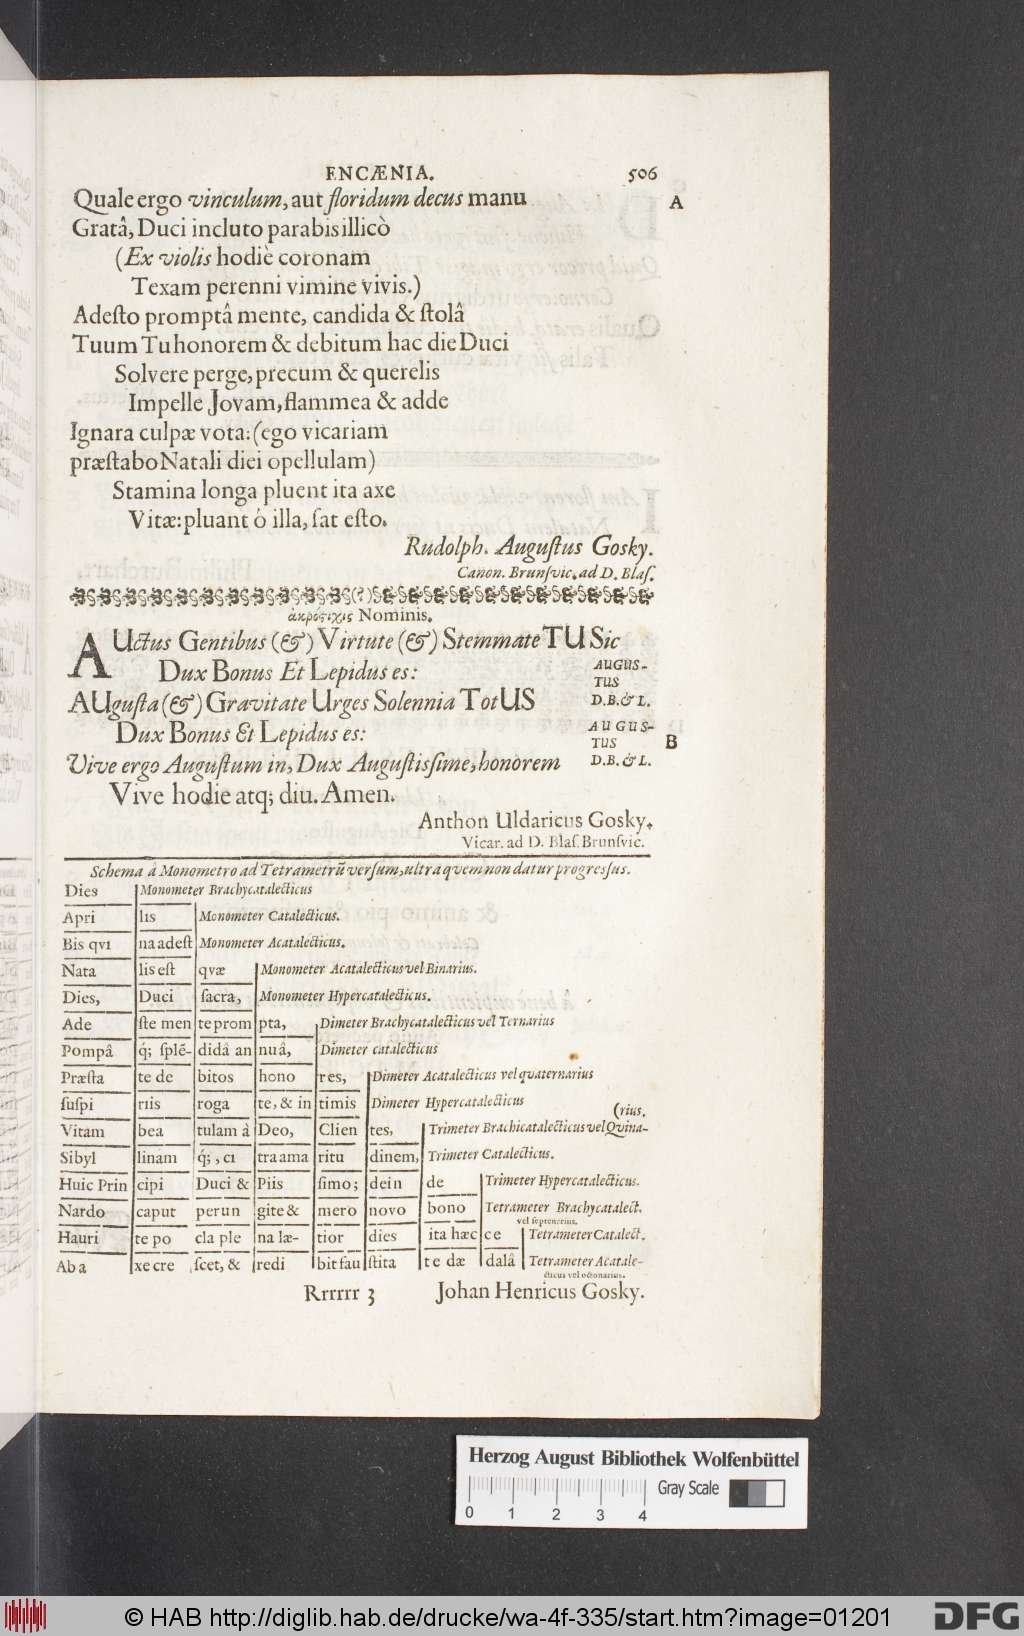 ENCÆNIA. 506
Quale ergo vinculum, aut floridum decus manu A
Gratâ, Duci incluto parabis illicò
(Ex violis hodiè coronam
Texam perenni vimine vivis.)
Adesto promptâ mente, candida & stolâ
Tuum Tu honorem & debitum hac die Duci
Solvere perge, precum & querelis
Impelle Jovam, flammea & adde
Ignara culpæ vota: (ego vicariam
præstabo Natali diei opellulam)
Stamina longa pluent ita axe
Vitæ: pluant ô illa, sat esto.
Rudolph. Augustus Gosky.
Canon. Brunsvic. ad D. Blas.
(?)
ἀκρόστιχις Nominis.
AUctus Gentibus (&) Virtute (&) Stemmate TUSic
Dux Bonus Et Lepidus es: AUGUS-
TUS
AUgusta (&) Gravitate Urges Solennia TotUS D. B. & L.
Dux Bonus Et Lepidus es: AUGUS-
TUS B
Vive ergo Augustum in, Dux Augustissime, honorem D. B. & L.
Vive hodie atq; diu. Amen.
Anthon Uldaricus Gosky.
Vicar. ad D. Blas. Brunsvic.
Schema à Monometro ad Tetrametrũ versum, ultra quem non datur progressus.
Dies Monometer Brachycatalecticus
Apri lis Monometer Catalecticus.
Bis qvi na adest Monometer Acatalecticus.
Nata lis est qvæ Monometer Acatalecticus vel Binarius.
Dies, Duci sacra, Monometer Hypercatalecticus.
Ade ste men te prom pta, Dimeter Brachycatalecticus vel Ternarius
Pompâ q́; splẽ- didâ an nuâ, Dimeter catalecticus
Præsta te de bitos hono res, Dimeter Acatalecticus vel quaternarius
suspi riis roga te, & in timis Dimeter Hypercatalecticus
(rius.
Vitam bea tulam à Deo, Clien tes, Trimeter Brachicatalecticus vel Qvina-
Sibyl linam q́;, ci tra ama ritu dinem, Trimeter Catalecticus.
Huic Prin cipi Duci & Piis simo; dein de Trimeter Hypercatalecticus.
Nardo caput perun gite & mero novo bono Tetrameter Brachycatalect.
vel septenarius.
Hauri te po cla ple na læ- tior dies ita hæc ce Tetrameter Catalect.
Ab a xe cre scet, & redi bit fau stita te dæ dalâ Tetrameter Acatale-
cticus vel octonarius.
Rrrrrr 3 Johan Henricus Gosky.
Herzog August Bibliothek Wolfenbüttel
Gray Scale
0 1 2 3 4
© HAB http://diglib.hab.de/drucke/wa-4f-335/start.htm?image=01201 DFG